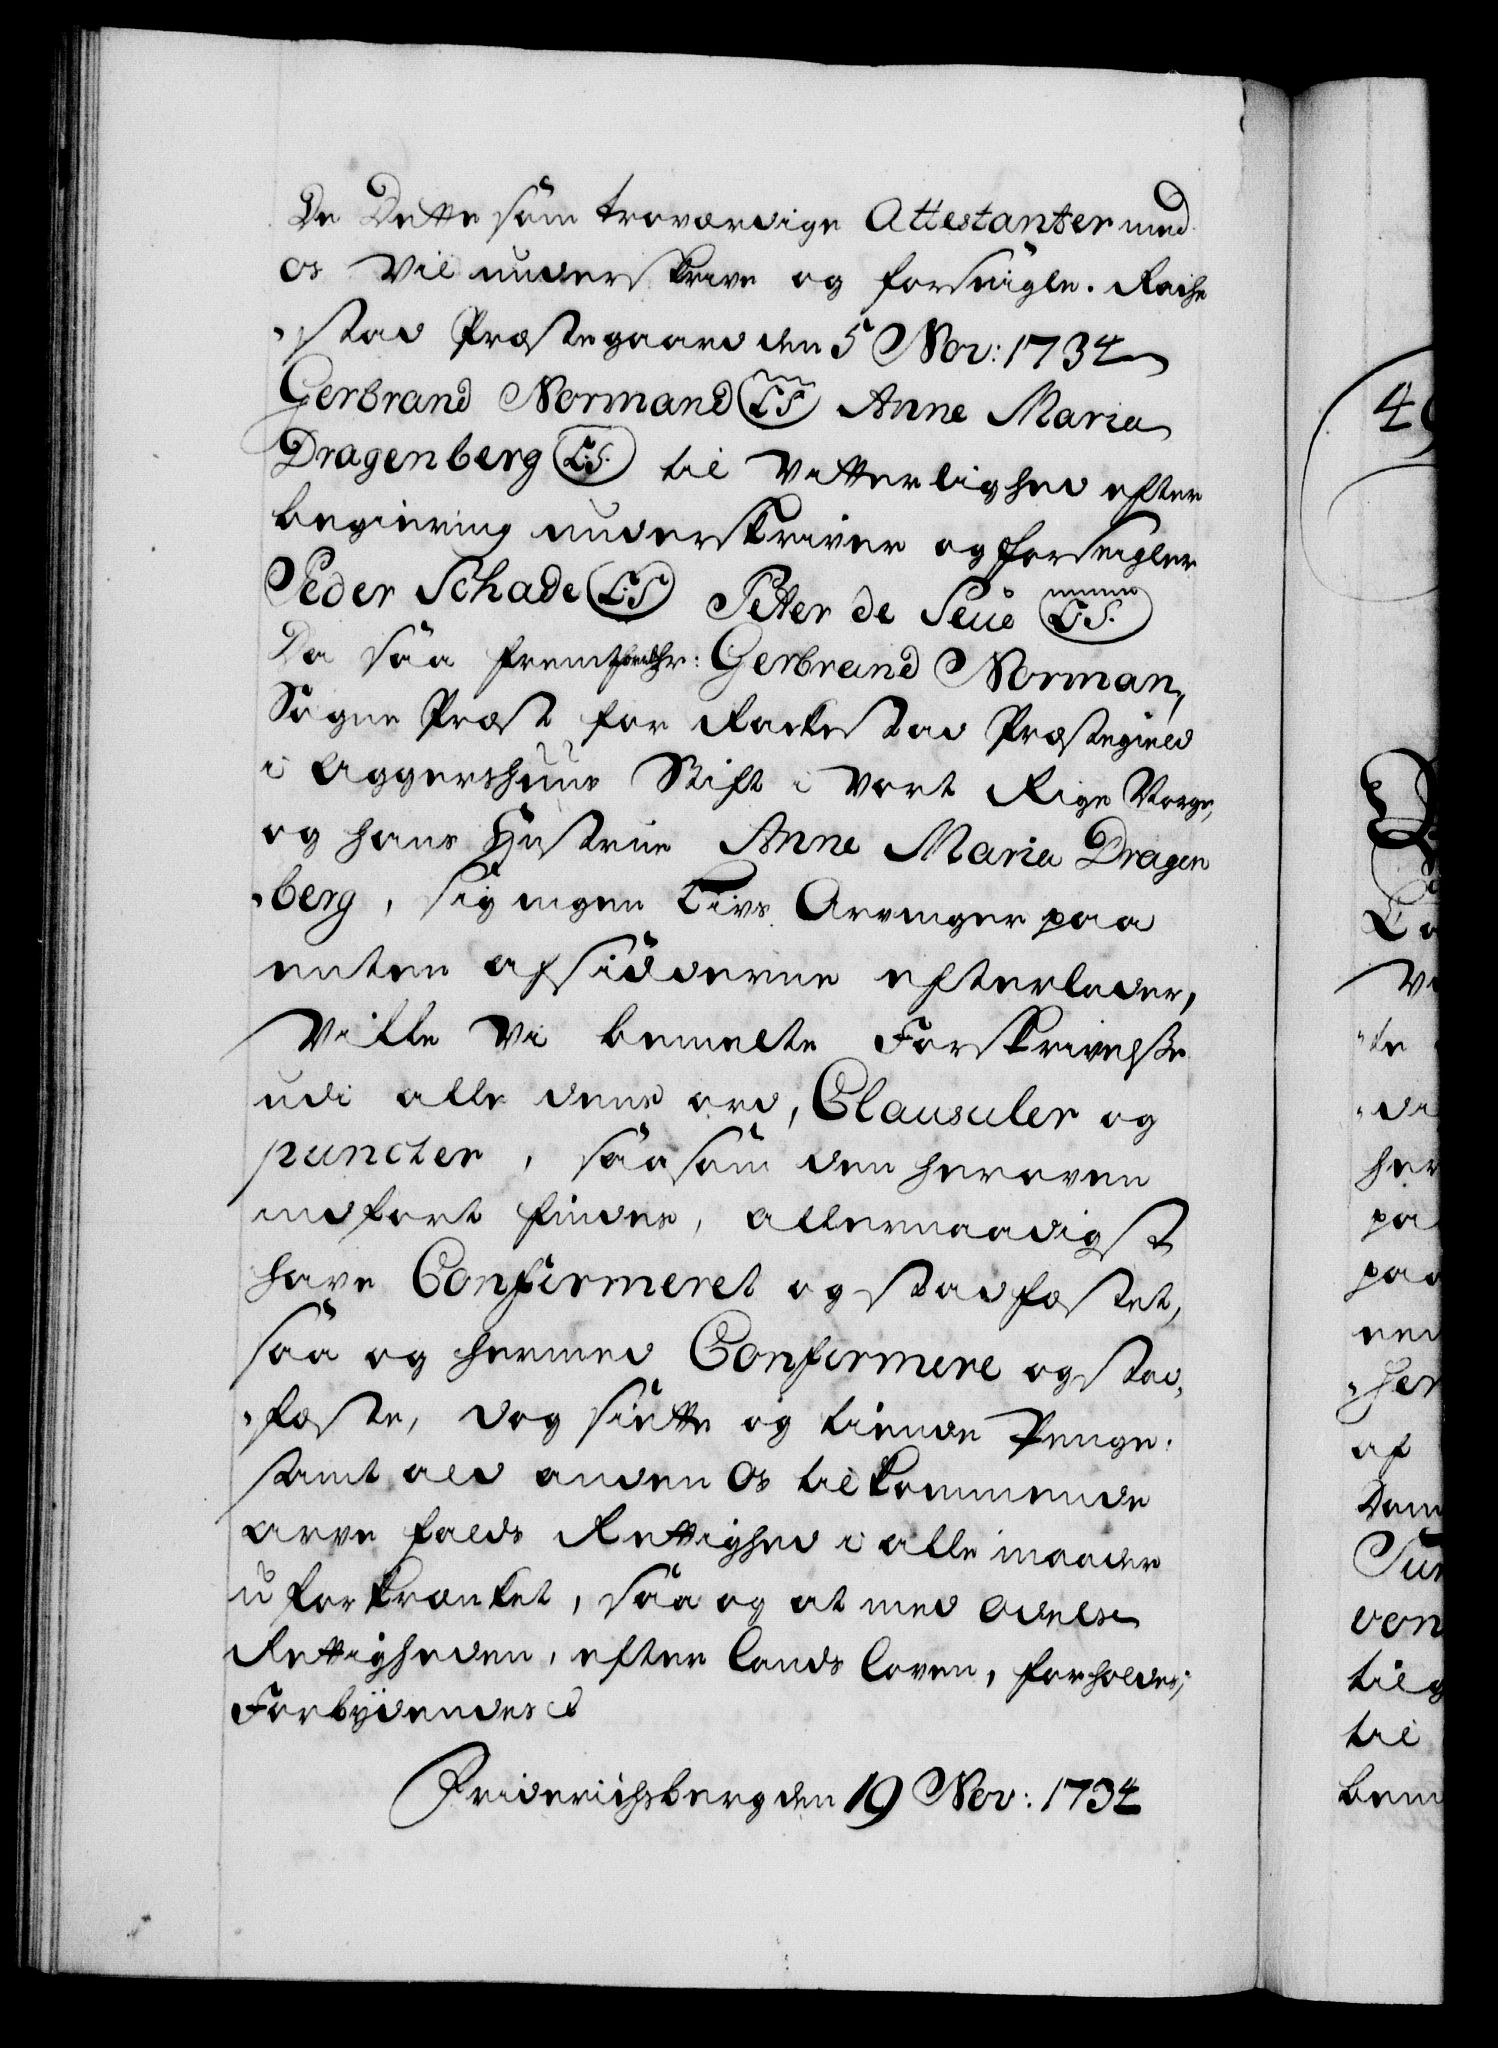 De Dette som troværdige Attestanter med
os vil underskrive og forseigle. Rache
„stad Præstegaard den 5 Nov: 1734
Gerbrand Normand (L.S.) Anne Maria
Dragenberg (L.S.) til Vitterlighed efter
begiering underskriver og forseigler
Peder Schade (L.S) Peter de Seüe (L.S.)
Da saa fremt hr: Gerbrand Norman,
Sogne Præst for Rackestad Præstegield
i Aggershuus Stift i Vort Rige Norge,
og hans Hustrue Anne Maria Dragen
„berg, sig ingen Livs Arvinger paa
enten af sidderne efterlader,
Ville Vi bemelte Forskrivelse
udi alle dens ord, Clausuler og
puncter, saasom den heroven
indført findes, allernaadigst
have Confirmeret og stadfæstet,
saa og hermed Confirmere og stad„
„fæste, dog siette og tiende Penge,
samt ald anden Os tilkommende
arve falds Rettighed i alle maader
uforkrænket, saa og at med Odels
Rettigheden, efter Lands Loven, forholdes;
Forbydendes
Friderichsberg den 19 Nov: 1734